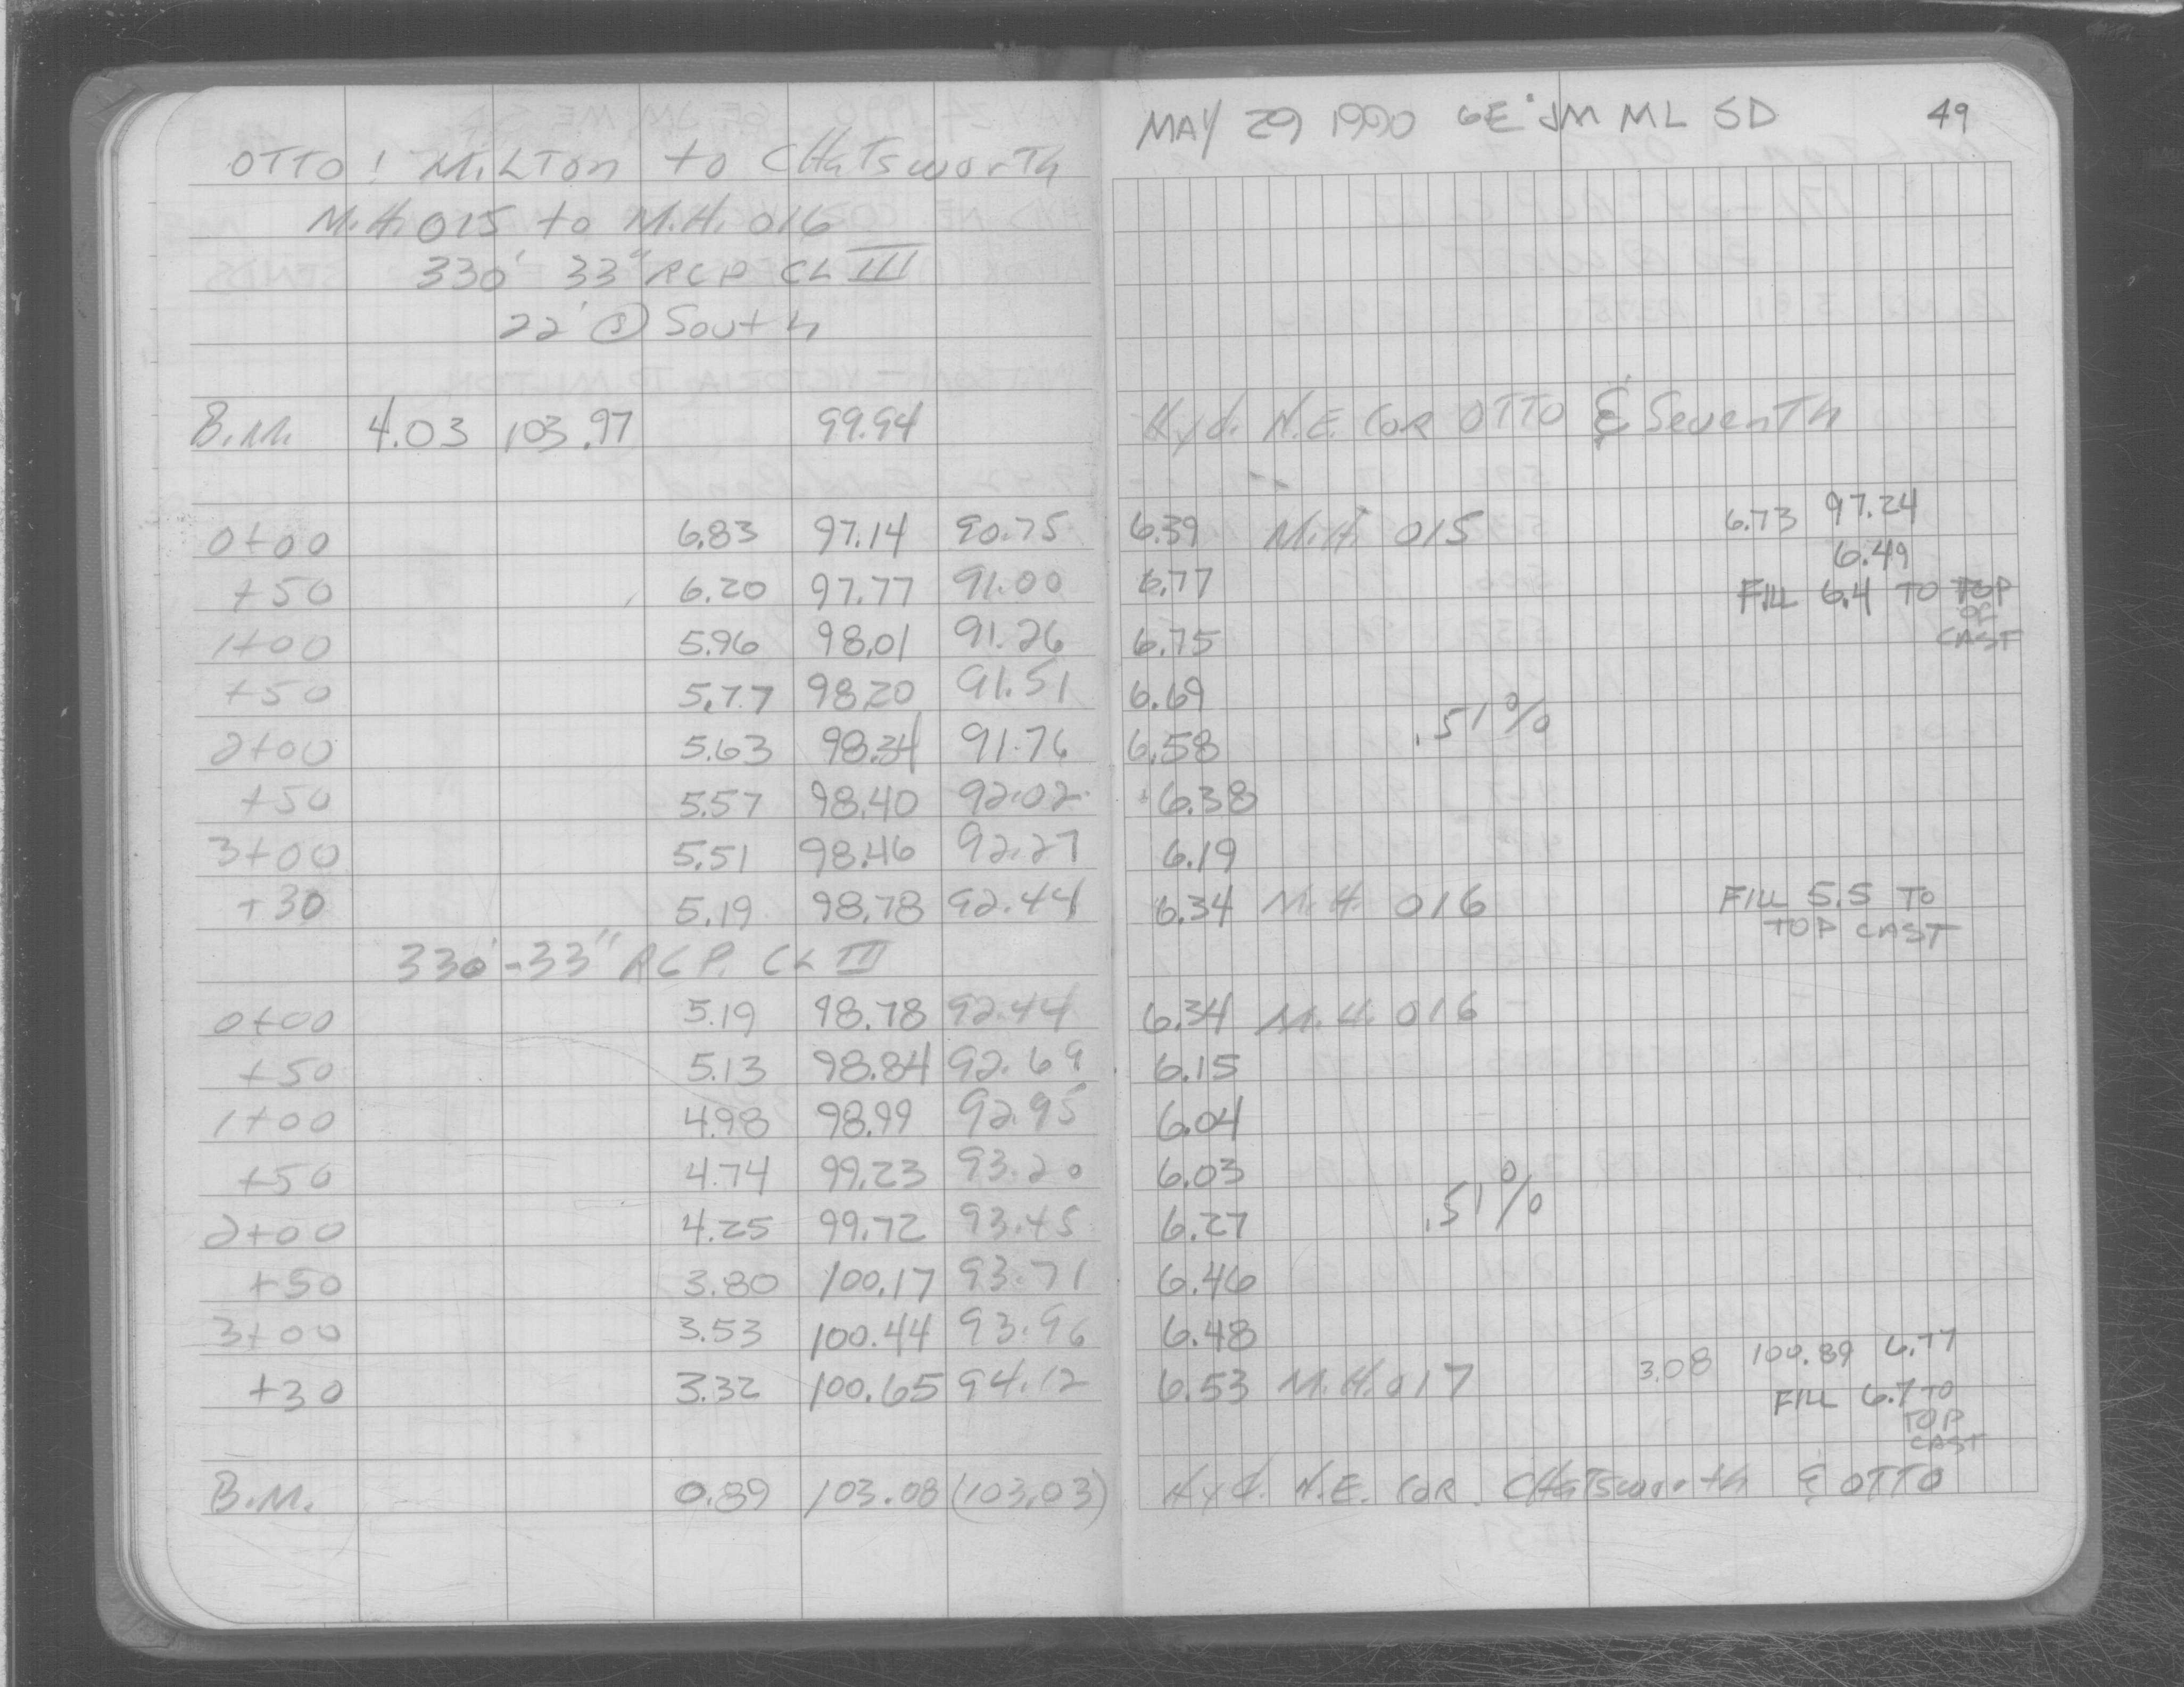 MAY 29 1990 GE JM ML SD 49
OTTO: MiLTon to CHaTsworTh
M.H. 015 to M.H. 016
330' 33" RCP CL III
22' @ South
B.M. 4.03 103.97 99.94 Hyd. N.E. COR OTTO & SevenTh
0+00 6.83 97.14 90.75 6.39 M.H. 015 6.73 97.24
6.49
+50 6.20 97.77 91.00 6.77 FILL 6.4 TO TOP
OF
1+00 5.96 98.01 91.26 6.75 CAST
+50 5.77 98.20 91.51 6.69
.51%
2+00 5.63 98.34 91.76 6.58
+50 5.57 98.40 92.02 6.38
3+00 5.51 98.46 92.27 6.19
+30 5.19 98.78 92.44 6.34 M.H. 016 FILL 5.5 TO
TOP CAST
330'-33" RCP. CL III
0+00 5.19 98.78 92.44 6.34 M.H. 016
+50 5.13 98.84 92.69 6.15
1+00 4.98 98.99 92.95 6.04
+50 4.74 99.23 93.20 6.03
.51%
2+00 4.25 99.72 93.45 6.27
+50 3.80 100.17 93.71 6.46
3+00 3.53 100.44 93.96 6.48
+30 3.32 100.65 94.12 6.53 M.H. 017 3.08 100.89 6.77
FILL 6.7 TO
TOP
CAST
B.M. 0.89 103.08 (103.03) Hyd. N.E. COR. CHaTsworth & OTTO